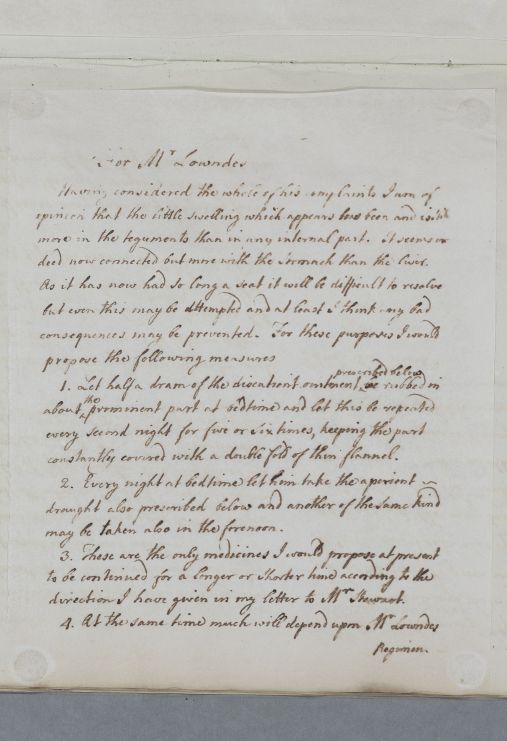 For Mr Lowndes
Having considered the whole of his complaints I am of
opinion that the little swelling which appears has been and is still
more in the teguments than in any internal part. It seems in
deed now connected but more with the Stomach than the liver.
As it has now had so long a seat it will be difficult to resolve
but even this may be attempted and at least I think any bad
consequences may be prevented. For these purposes I would
propose the following measures
prescribed below
1. Let half a dram of the discutient ointment be rubbed in
about the prominent part at bedtime and let this be repeated
every second night for five or six times, keeping the part
constantly covered with a double fold of thin flannel.
2. Every night at bedtime let him take the aperient
draught also prescribed below and another of the same kind
may be taken also in the forenoon.
3. These are the only medicines I would propose at present
to be continued for a longer or shorter time according to the
direction I have given in my letter to Mr Stewart.
4. At the same time much will depend upon Mr Lowndes
Regimen.